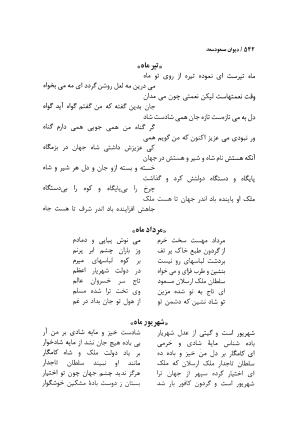 ۵۴۲ / دیوان مسعودسعد
*تیر ماه*
ماه تیرست ای نموده تیره از روی تو ماه
می درین مه لعل روشن گردد ای مه می بخواه
وقت نعمتهاست لیکن نعمتی چون می مدان
جان بدین گفته که من گفتم گواه آید گواه
دل به می تازه‌ست تازه جان همی شادست شاد
گر گناه من همی جویی همی دارم گناه
ور نبودی می عزیز اکنون که من گویم همی
کی عزیزش داشتی شاه جهان در بزمگاه
آنکه هستش نام شاه و شیر و هستش در جهان
خسته و بسته ازو جان و دل هر شیر و شاه
پایگاه و دستگاه دولتش کرد و گذاشت
چرخ را بی‌پایگاه و کوه را بی‌دستگاه
ملک او پاینده باد اندر جهان تا هست ملک
جاهش افزاینده باد اندر شرف تا هست جاه
*مرداد ماه*
مرداد مهست سخت خرم
می نوش پیاپی و دمادم
از گردون طبع خاک پر تف
وز باران چشم ابر پرنم
بردشت لباسهای رو نیست
بر کوه لباسهای میرم
بنشین و طرب فزای و می خواه
در دولت شهریار اعظم
سلطان ملک ارسلان مسعود
تاج سر خسروان عالم
ای تاج به تو شده مزین
وی تخت ترا شده مسلم
تو شاد نشین که دشمن تو
از هول تو جان بداد در غم
*شهریور ماه*
شهریور است و گیتی از عدل شهریار
شادست خیز و مایه شادی بر من آر
باده شناس مایهٔ شادی و خرمی
بی باده هیچ جان نشد از مایه شادخوار
ای کامگار بر دل من خیز و باده ده
بر یاد دولت ملک و شاه کامگار
سلطان تاجدار ملک ارسلان که ملک
مانند او نبیند سلطان تاجدار
ای اختیار کرده سپهر از جهان ترا
هرگز ندید چشم جهان چون تو اختیار
شهریور است و گردون کافور بار شد
بستان ز دوست بادهٔ مشکین خوشگوار